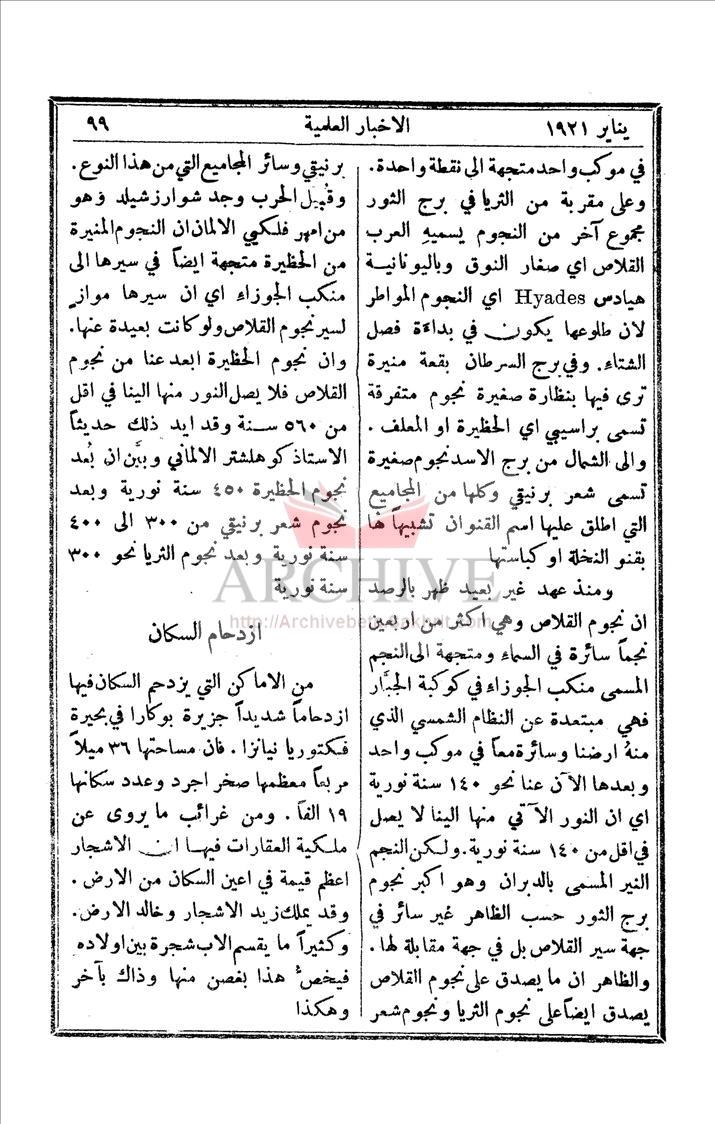 يناير ١٩٢١
الاخبار العلمية
٩٩
في موكب واحد متجهة الى نقطة واحدة.
وعلى مقربة من الثريا في برج الثور
مجموع آخر من النجوم يسميهِ العرب
القلاص اي صغار النوق وباليونانية
هيادس Hyades اي النجوم المواطر
لان طلوعها يكون في بداءة فصل
الشتاء. وفي برج السرطان بقعة منيرة
ترى فيها بنظارة صغيرة نجوم متفرقة
تسمى براسيبي اي الحظيرة او المعلف.
والى الشمال من برج الاسد نجوم صغيرة
تسمى شعر برنيقي وكلها من المجاميع
التي اطلق عليها اسم القنوان تشبيهاً لها
بقنو النخلة او كباستها
ومنذ عهد غير بعيد ظهر بالرصد
ان نجوم القلاص وهي اكثر من اربعين
نجماً سائرة في السماء ومتجهة الى النجم
المسمى منكب الجوزاء في كوكبة الجبَّار
فهي مبتعدة عن النظام الشمسي الذي
منهُ ارضنا وسائرة معاً في موكب واحد
وبعدها الآن عنا نحو ١٤٠ سنة نورية
اي ان النور الآتي منها الينا لا يصل
في اقل من ١٤٠ سنة نورية. ولكن النجم
النير المسمى بالدبران وهو اكبر نجوم
برج الثور حسب الظاهر غير سائر في
جهة سير القلاص بل في جهة مقابلة لها.
والظاهر ان ما يصدق على نجوم القلاص
يصدق ايضاً على نجوم الثريا ونجوم شعر
برنيقي وسائر المجاميع التي من هذا النوع.
وقُبيل الحرب وجد شوارزشيلد وهو
من اشهر فلكيي الالمان ان النجوم المنيرة
من الحظيرة متجهة ايضاً في سيرها الى
منكب الجوزاء اي ان سيرها موازٍ
لسير نجوم القلاص ولو كانت بعيدة عنها.
وان نجوم الحظيرة ابعد عنا من نجوم
القلاص فلا يصل النور منها الينا في اقل
من ٥٦٠ سنة وقد ايد ذلك حديثاً
الاستاذ كوهلشتر الالماني وبيَّن ان بُعد
نجوم الحظيرة ٤٥٠ سنة نورية وبعد
نجوم شعر برنيقي من ٣٠٠ الى ٤٠٠
سنة نورية وبعد نجوم الثريا نحو ٣٠٠
سنة نورية
ازدحام السكان
من الاماكن التي يزدحم السكان فيها
ازدحاماً شديداً جزيرة بوكارا في بحيرة
فكتوريا نيانزا. فان مساحتها ٣٦ ميلاً
مربعاً معظمها صخر اجرد وعدد سكانها
١٩ الفاً. ومن غرائب ما يروى عن
ملكية العقارات فيها ان الاشجار
اعظم قيمة في اعين السكان من الارض.
وقد يملك زيد الاشجار وخالد الارض.
وكثيراً ما يقسم الاب شجرة بين اولاده
فيخصُّ هذا بغصن منها وذاك بآخر
وهكذا
ARCHIVE